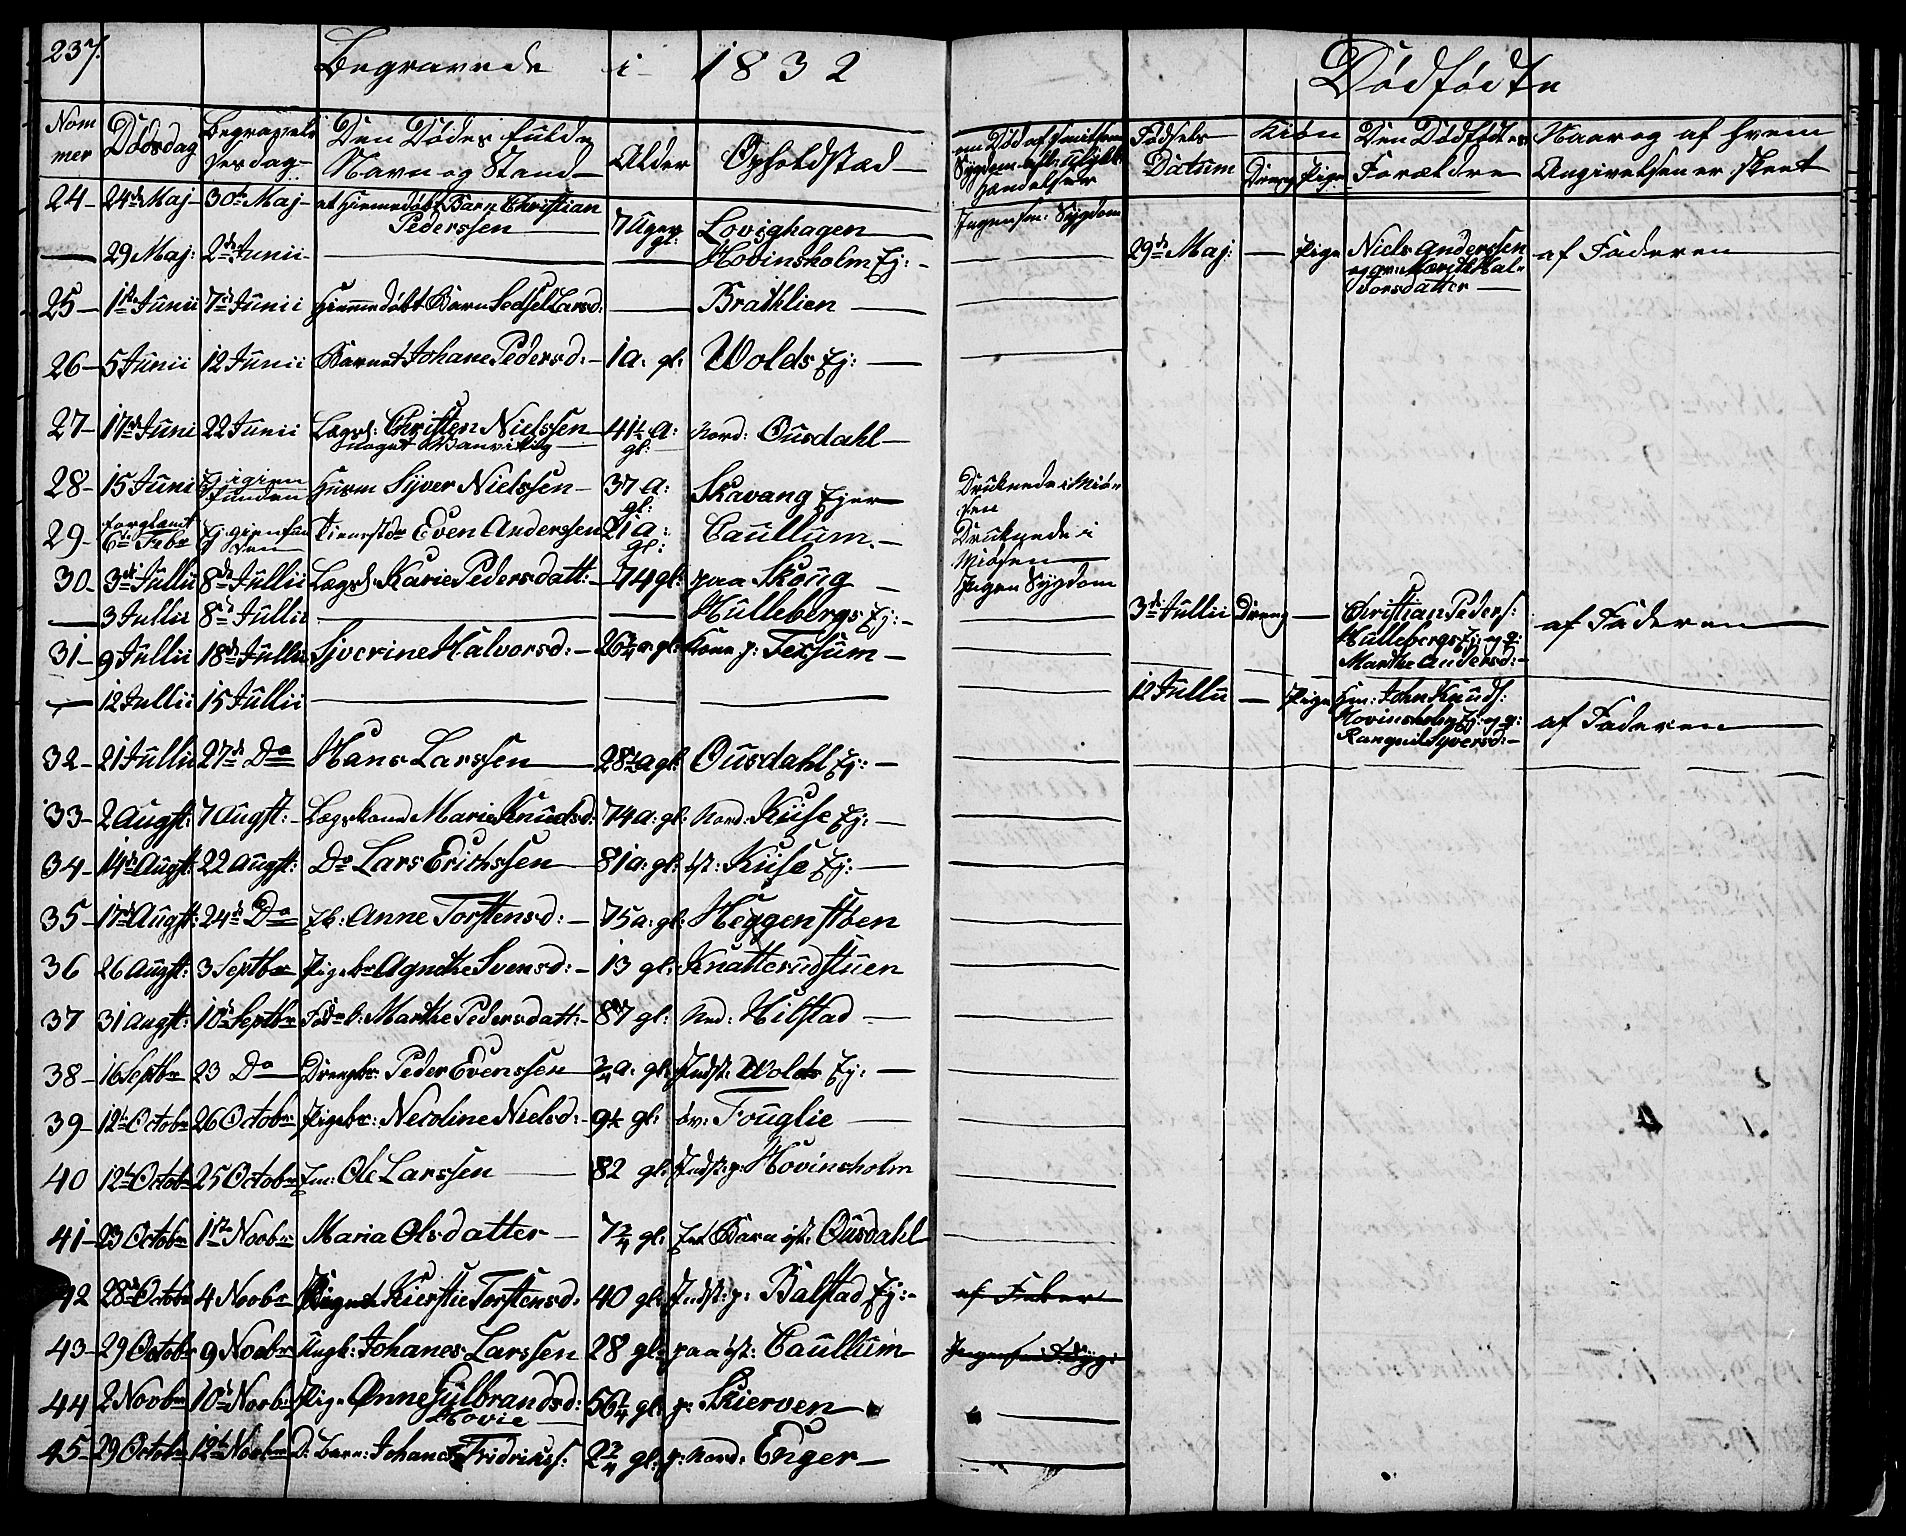 237.
Begravede i 1832
Dødfødte
Nommer Dødsdag Begravelsesdag Den Dødes fulde Navn og Stand Alder Opholdstad
Fødsels Datum Kiøn Dreng Pige Den Dødfødtes Forældre Naar og af hvem Angivelsen er skeet
24 - 24de Maj 30te Maj - et hiemedøbt Barn Christian Pederssen 7 Uger gl: Lovighagen Ingen sm: Sygdom
29 Maj: 2den Junii - Hovinsholm Ej: - 29de Maj: - Pige Niels Anderssen og qv: Marith Halvorsdatter - af Faderen
25 - 1ste Junii 7de Junii hiemmedøbt Barn Sedsel Larsd: Brathlien
26 - 5 Junii 12 Junii Barnet Johane Pedersd: - 1 a: gl: Wolds Ej: -
27 - 17de Juni 22 Junii Lægsl: Christen Nielssen noget Vanvittig 41½ a: gl: Nord: Ousdahl -
28 - 15 Juni Ej igienfunden Husm Syver Nielssen - 37 a: gl: Skavang Ejer Druknede i Miøsen
29 - forglemt 6te Febr Ej gienfunden Tienestdr Even Anderssen 21 a: gl: Caullum. - Druknede i Miøsen
30 - 3de Jullii 8de Jullii Lægsl: Karie Pedersdatt: - 74 gl: paa Skoug Ingen Sygdom
3 Jullii 8de Jullii Hullebergs Ej: - 3de Jullii Dreng - Christian Peders: Hullebergs Ej: og q: Marthe Andersd: - af Faderen
31 - 9 Jullii 18de Jullii Syverine Halvorsd: - 26¼ a: gl: Kone p: Texsum -
12 Jullii 15 Jullii 12 Jullii - Pige Hm: John Knuds: Hovinsholm Ej: og q: Rangnil Syversd: - af Faderen
32 - 21 Jullii 27de Do Hans Larssen 28½ a gl: Ousdahl Ej: -
33 - 2 Augst: 7 Augst: - Lægskone Marie Knudsd: 74 a: gl: Nord: Kise Ej: -
34 - 14de Augst: 22 Augst: Do Lars Erichssen 81 a: gl: øst: Kise Ej: -
35 - 17de Augst: 24de Do Anne Torstensd: - 75 a: gl: Heggenstøen
36 26 Augst: 3 Septbr Pigebr Agnethe Svensd: - 13 gl: Knatterudstuen
37 31 Augst: 10de Septbr Marthe Pedersdatt: - 87 gl: Ned: Hilstad -
38 - 16 Septbr 23 Do Drengbr: Peder Evenssen ¾ a: gl: Indst: Wolds Ej: -
39 - 12te Octobr 26 Octobr Pigebr: Nicoline Nielsd: - 9¼ gl: øv: Fouglie
40 12te Octobr 25 Octobr Em: Ole Larssen 82 gl: Indst: p: Hovinsholm
41 - 23 Octobr 1ste Novbr Maria Olsdatter 7¾ gl: Et Barn øst: Ousdahl
42 28de Octobr 4 Novbr Kierstie Torstensd: 40 gl: Indst: p: Balstad Ej: - af Feber
43 - 29 Octobr 9 Novbr Ungk: Johanes Larssen 28 gl: paa øst: Caullum Ingen Syg:
44 2 Novbr 10de Novbr Pige Anne Gulbrandsd: Hovie 56¼ gl: p: Skierven
45 - 29 Octobr 12te Novbr D: Barn: Johanes Fridrikss: 2¾ gl: p: Nord: Enger -